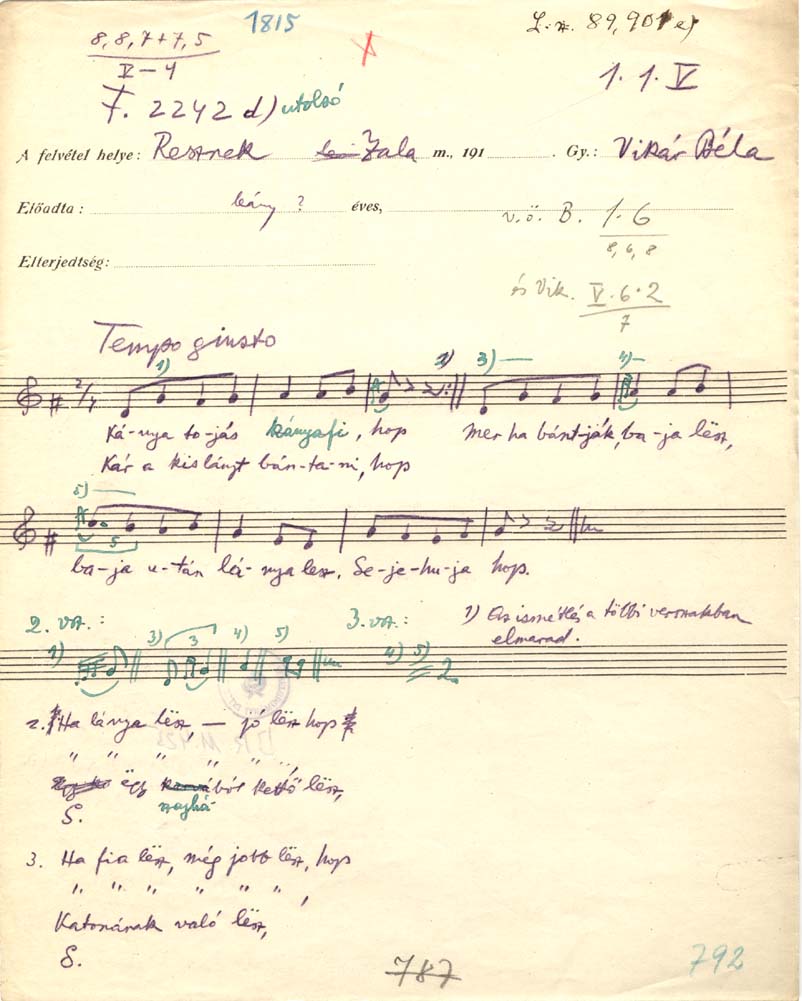 8, 8, 7+7, 5
1815
L. sz. 89, 901 e)
V — 4
1. 1. V
F. 2242 d) utolsó
A felvétel helye: Resznek Zala m., 191 . Gy.: Vikár Béla
Előadta: leány ? éves,
v. ö. B. 1. 6
8, 6, 8
Elterjedtség:
és Vik. V. 6. 2
7
Tempo giusto
1) 2) 3) 4)
2/4
Ká-nya to-jás kányafi, hop Mer ha bánt-ják, ba-ja lësz,
Kár a kislányt bán-ta-ni, hop
5)
5
ba-ja u-tán lá-nya lesz. Se-je-hu-ja hop.
2. vsz.: 3. vsz.: 1) Az ismétlés a többi versszakban
elmarad.
1) 3) 3 4) 5) 4) 5)
2. Ha lánya lësz, — jó lësz hop
" " " " " ,
ëgy szajhá-ból kettő lësz,
S.
3. Ha fia lësz, még jobb lësz, hop
" " " " " " ,
Katonának való lësz,
S.
787
792